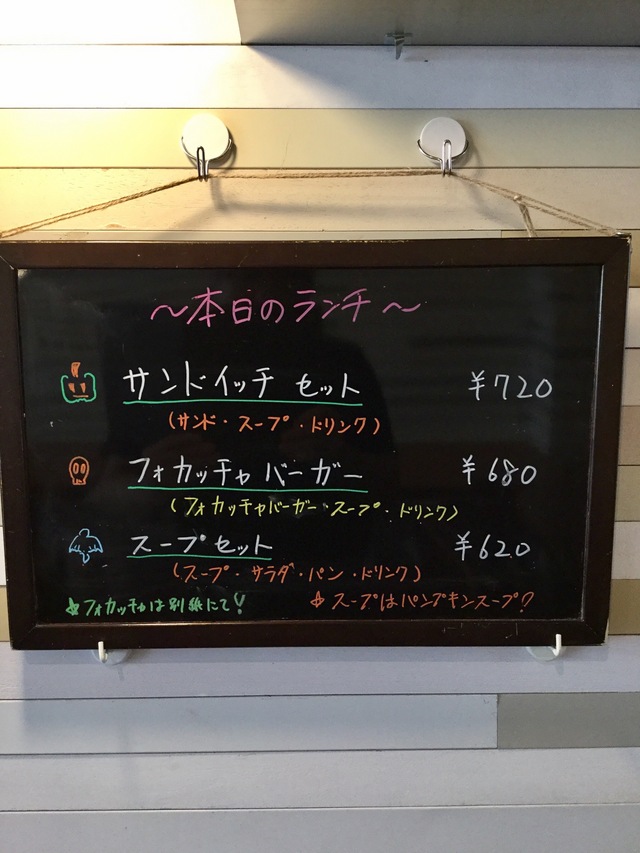 ～本日のランチ～
サンドイッチ セット ￥720
(サンド・スープ・ドリンク)
フォカッチャバーガー ￥680
(フォカッチャバーガー・スープ・ドリンク)
スープセット ￥620
(スープ・サラダ・パン・ドリンク)
☆フォカッチャは別紙にて!
☆スープはパンプキンスープ♪